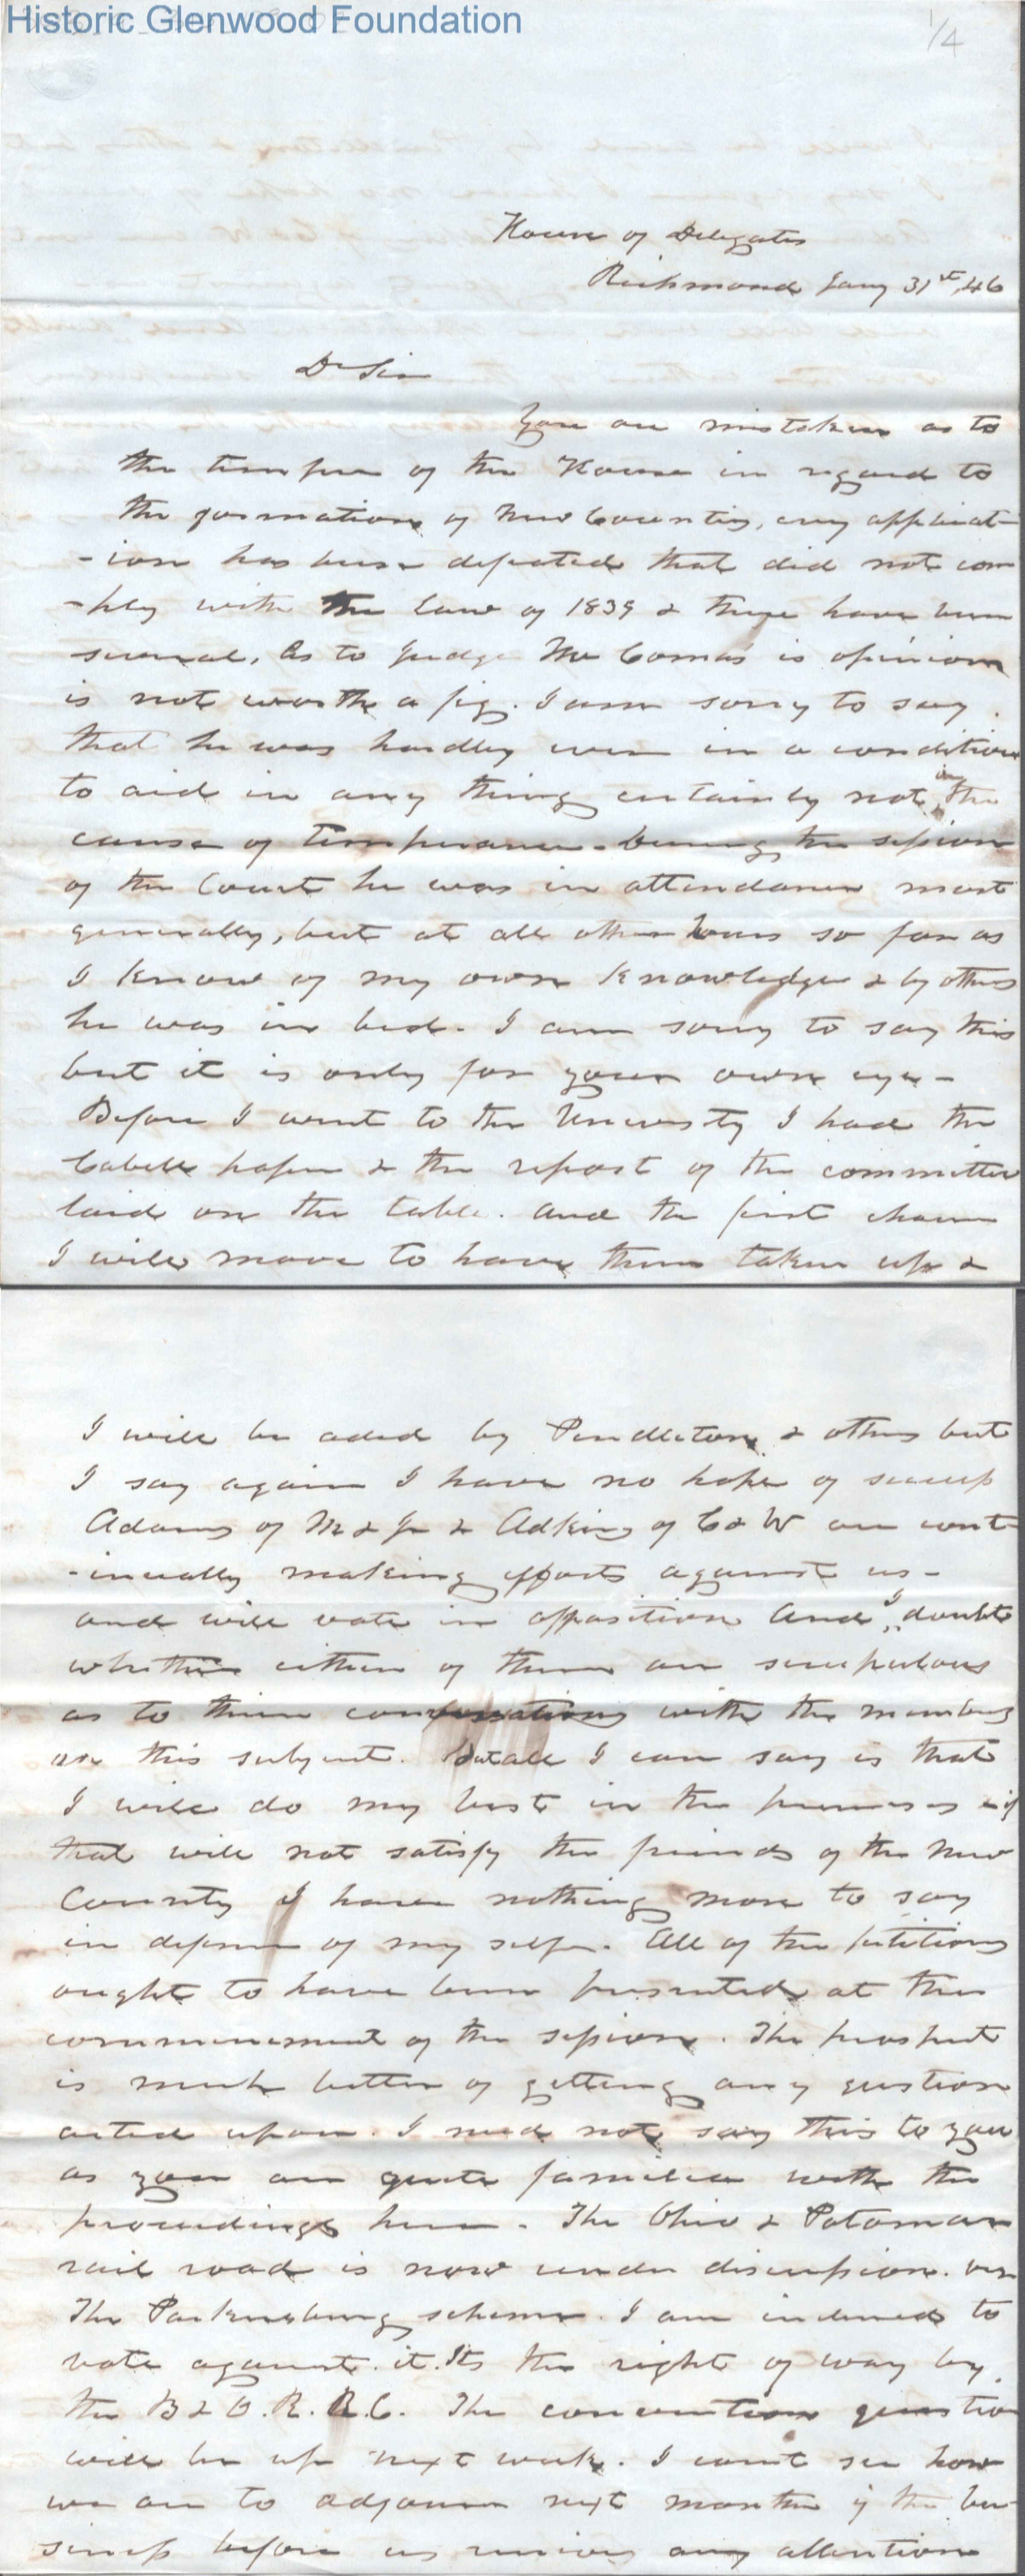 Historic Glenwood Foundation
1/4
House of Delegates
Richmond Jany 31st, 46
Dr Sir
You are mistaken as to
the temper of the House in regard to
the formation of New Counties, evry applicat-
-ion has been defeated that did not com
-ply with the law of 1839 & there have been
several. As to Judge McComas is opinion
is not worth a fig. I am sorry to say
that he was hardly ever in a condition
to aid in any thing certainly not in the
cause of temperance. During the session
of the Court he was in attendance most
generally, but at all other hours so far as
I know of my own knowledge & by others
he was in bed. I am sorry to say this
but it is only for your own eye -
Before I went to the University I had the
Cabell paper & the report of the committee
laid on the table. And the first chance
I will move to have them taken up &
I will be aded by Pendleton & others but
I say again I have no hope of success
Adams of M & J & Adkins of C & W are cont
-inually making efforts against us -
and will vote in opposition And I doubt
whether either of them are scrupulous
as to their conversations with the members
on this subject. But all I can say is that
I will do my best in the premises & if
that will not satisfy the friends of the New
County I have nothing more to say
in defense of my self. All of the petitions
ought to have been presented at the
commencement of the session. The prospect
is much better of getting any question
acted upon. I need not say this to you
as you are quite familiar with the
proceedings here. The Ohio & Potomac
rail road is now under discussion.
The Parkersburg scheme. I am inclined to
vote against it. Its the right of way by
the B & O. R. R. C. The convention question
will be up next week. I cant see how
we are to adjourn next month if the bu-
siness before us receives any attention